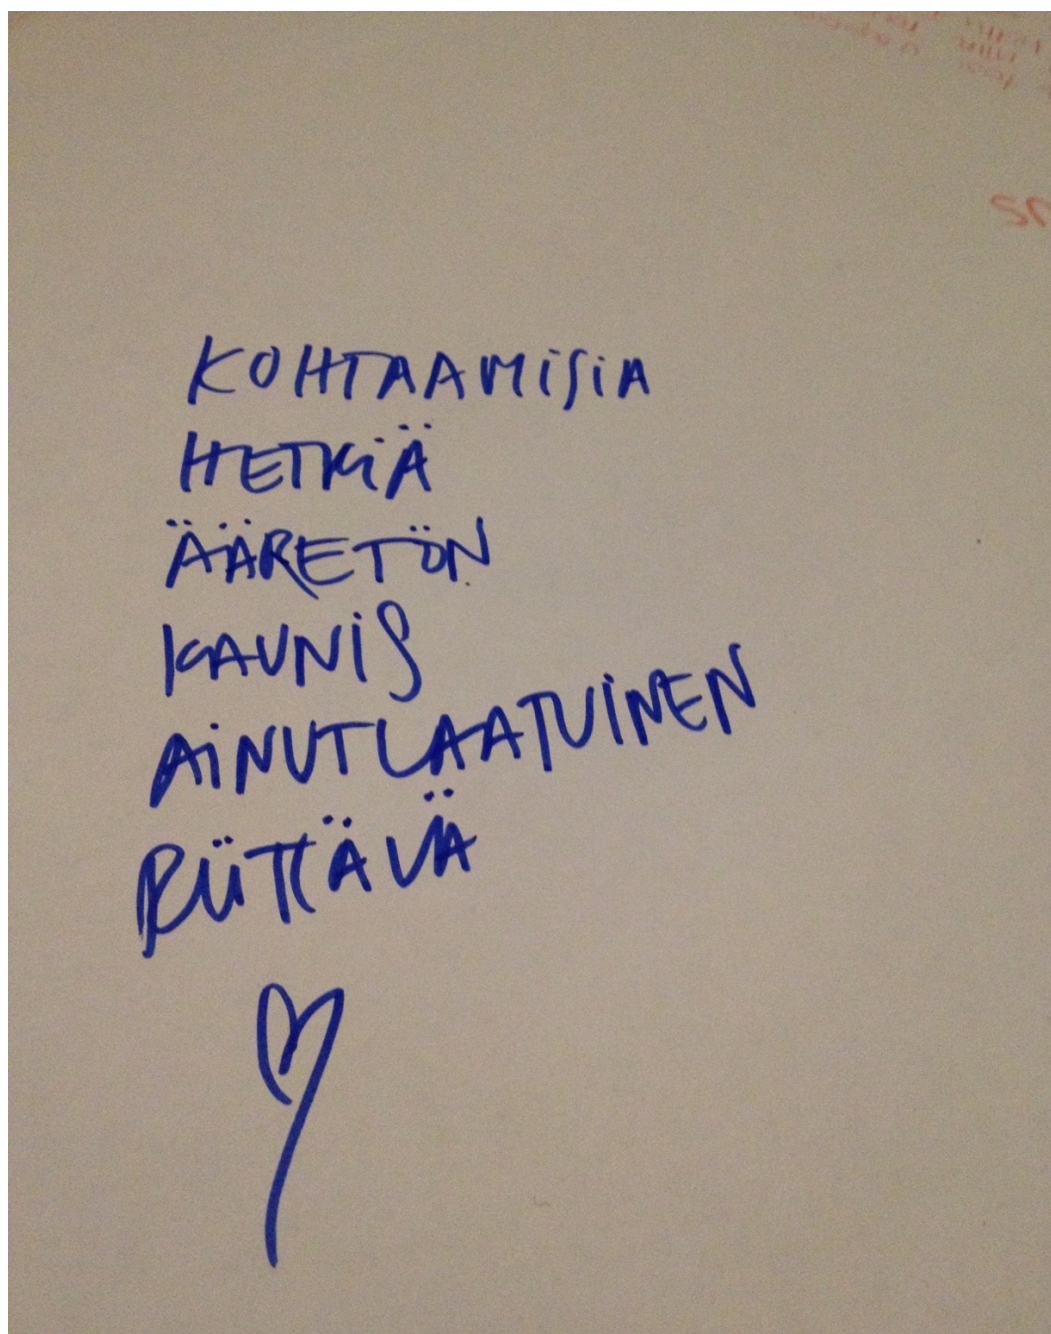 KOHTAAMISIA
HETKIÄ
ÄÄRETÖN
KAUNIS
AINUTLAATUINEN
RIITTÄVÄ